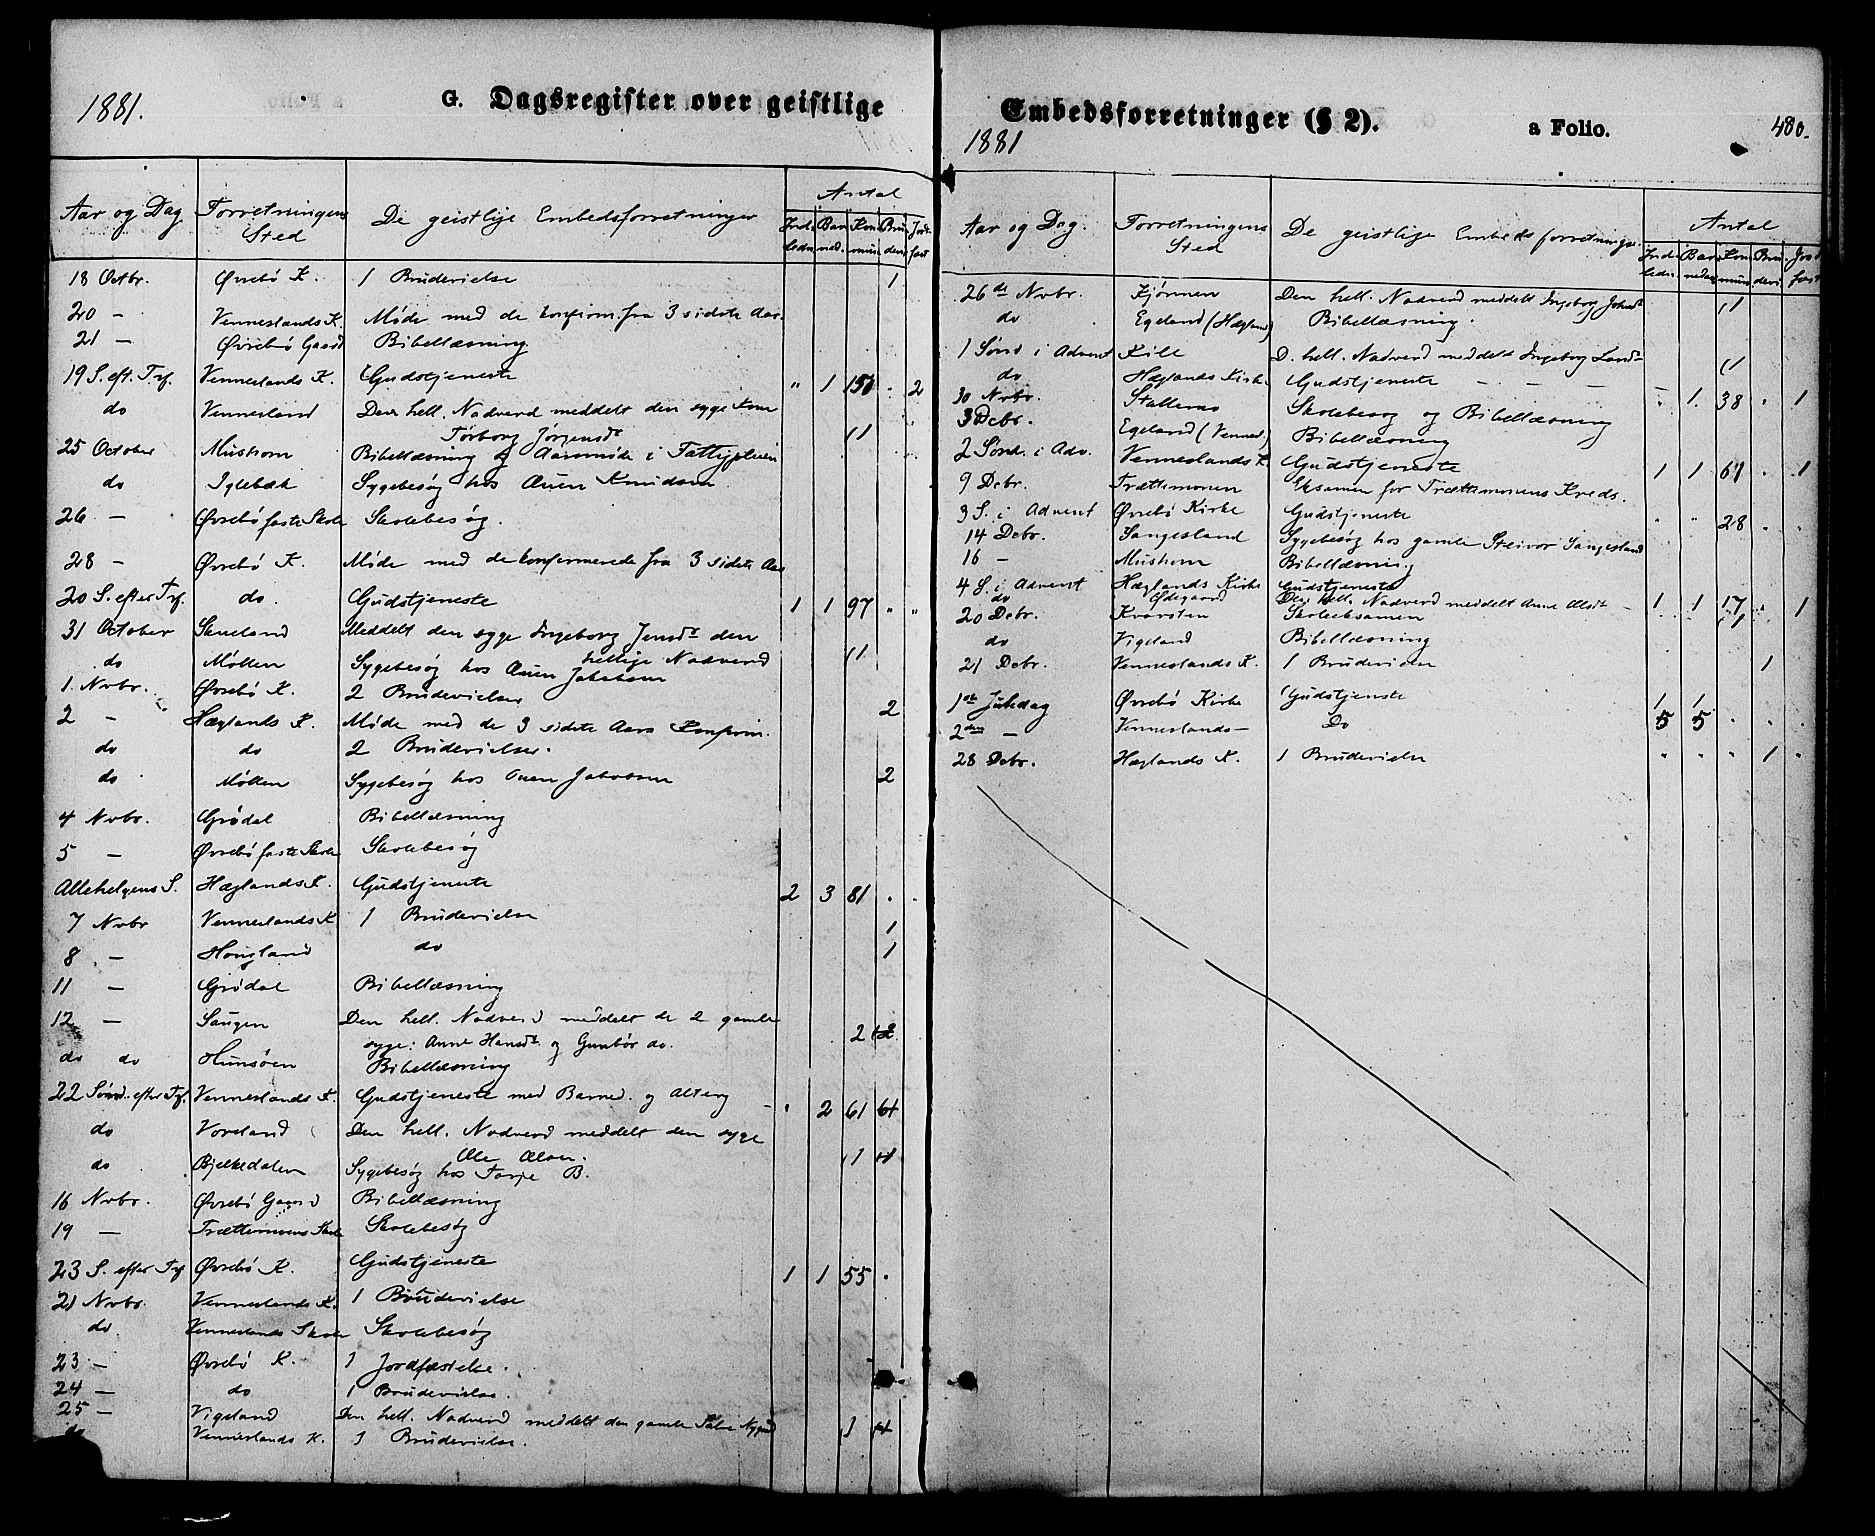 1881.
G. Dagsregister over geistlige
Aar og Dag Forretningens Sted De geistlige Embedsforretninger Antal
18 Octbr. Øvrebö K. 1 Brudevielse 1
20 - Vennerslands K. Møde med de konfirm. fra 3 sidste Aar.
21 - Øvrebö Gaard Bibellæsning
19 S. eft. Trf. Vennerslands K. Gudstjeneste " 1 150 . 2
do Vennersland Den hell. Nadverd meddelt den syge
Törborg Jörgensdt
25 October Mushom Bibellæsning og Aarsmöde i Fattigpleien
do Iglebæk Sygebesög hos Auen Knudsen
26 - Øvrebö faste Skole Skolebesög.
28 - Øvrebö K. Møde med de konfirmerede fra 3 sidste Aar
20 S. efter Trf. do. Gudstjeneste 1 1 97 " "
31 October Meddelt den syge Ingeborg Jensdt den
hellige Nadverd
do Møllen Sygebesög hos Auen Jakobsen
1. Novbr. Øvrebö K. 2 Brudevielser 2
2 - Hæglands K. Møde med de 3 sidste Aars Konfirm.
do do 2 Brudevielser. 2
do Møllen Sygebesög hos Auen Jakobsen
4 Novbr. Grödal Bibellæsning
5 - Øvrebö faste Skole Skolebesög
Allehelgens S. Hæglands K. Gudstjeneste 2 3 81 .
7 Novbr Vennerslands K 1 Brudevielse 1
8 - Hougland do 1
11 - Grödal Bibellæsning
12 - Saugen Den hell. Nadverd meddelt de 2 gamle
syge: Anne Hansdt. og Gunbör do. 2
do do Hunsöen Bibellæsning
22 Sönd. efter Trf. Vennerslands K. Gudstjeneste med Barned. og Alterg - . 2 61
do Voreland Den hell. Nadverd meddelt den syge
Ole Olsen. 1
do Bjelkedalen Sygebesög hos Tarje B.
16 Novbr. Øvrebö Gaard Bibellæsning
19 - Trættemoens Skole Skolebesög
23 S. efter Trf Øvrebö K. Gudstjeneste 1 1 55 .
21 Novbr. Vennerslands K. 1 Brudevielse
do Vennerslands Skole Skolebesög
23 - Øvrebö K. 1 Jordfæstelse.
24 - do 1 Brudevielse.
25 - Vigeland Den hell. Nadverd meddelt den gamle 1
Vennerslands K. 1 Brudevielse.
Embedsforretninger (§ 2).
a Folio. 480.
1881
Aar og Dag. Forretningens Sted De geistlige Embedsforretninger Antal
26de Novbr. Den hell. Nadverd meddelt Ingeborg 1
do Egeland (Hægland) Bibellæsning.
1 Sönd i Advent Kile D. hell. Nadverd meddelt Ingeborg 1
do Hæglands Kirke Gudstjeneste - - - - . 1. 38 . 1
30 Novbr. Skolebesög og Bibellæsning
3 Decbr. Egeland (Vennes.) Bibellæsning
2 Sönd. i Adv. Vennerslands K Gudstjeneste 1 1 61 . 1
9 Decbr. Trættemoen Eksamen for Trættemoens Kreds.
3 S. i Advent Øvrebö Kirke Gudstjeneste . " 28 . .
14 Decbr. Sangesland Sygebesög hos gamle Steivor Sangesland
16 - Mushom Bibellæsning
4 S. i Advent Hæglands Kirke Gudstjeneste 1 1 17 . 1
do Ödegaard Den hell. Nadverd meddelt Anne Olsdt - 1
20 Decbr. Kvarsten Skoleeksamen
do Vigeland Bibellæsning
21 Decbr. Vennerslands K. 1 Brudevielse 1
1ste Juledag Øvrebö Kirke Gudstjeneste 1 1
2den - Vennerslands - Do 5 5 . . .
28 Decbr. Hæglands K. 1 Brudevielse . . . 1 .